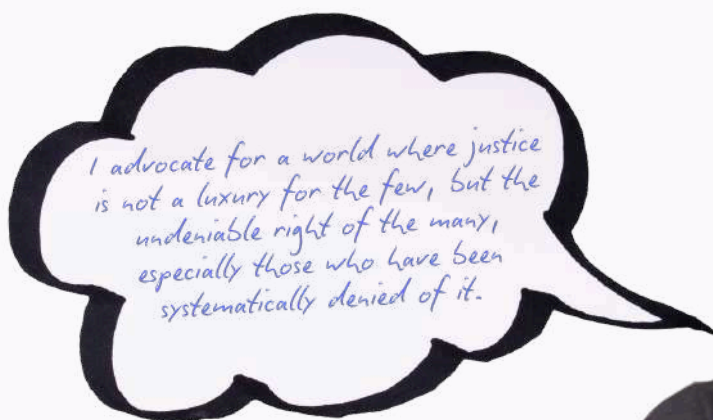 I advocate for a world where justice
is not a luxury for the few, but the
undeniable right of the many,
especially those who have been
systematically denied of it.